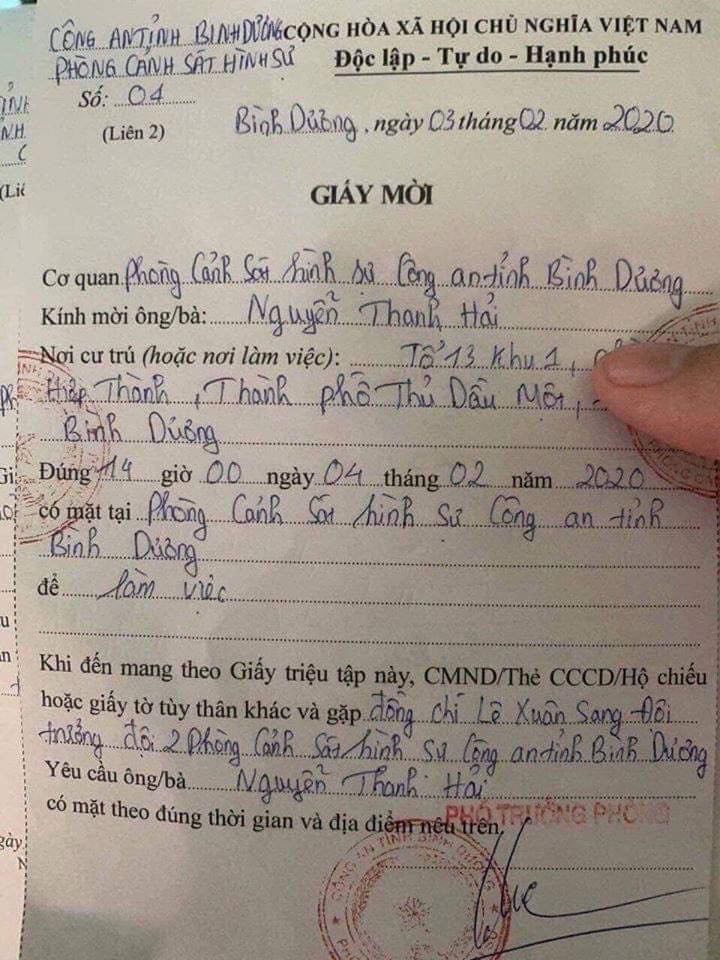 CÔNG AN TỈNH BÌNH DƯƠNG
CỘNG HÒA XÃ HỘI CHỦ NGHĨA VIỆT NAM
PHÒNG CẢNH SÁT HÌNH SỰ
Độc lập - Tự do - Hạnh phúc
Số: 04
(Liên 2)
Bình Dương, ngày 03 tháng 02 năm 2020
GIẤY MỜI
Cơ quan Phòng Cảnh Sát hình sự Công an tỉnh Bình Dương
Kính mời ông/bà: Nguyễn Thanh Hải
Nơi cư trú (hoặc nơi làm việc): Tổ 13 Khu 1,
Hiệp Thành, Thành phố Thủ Dầu Một,
Bình Dương
Đúng 14 giờ 00 ngày 04 tháng 02 năm 2020
có mặt tại Phòng Cảnh Sát hình sự Công an tỉnh
Bình Dương
để làm việc
Khi đến mang theo Giấy triệu tập này, CMND/Thẻ CCCD/Hộ chiếu
hoặc giấy tờ tùy thân khác và gặp đồng chí Lê Xuân Sang Đội
trưởng đội 2 Phòng Cảnh Sát hình sự Công an tỉnh Bình Dương
Yêu cầu ông/bà Nguyễn Thanh Hải
có mặt theo đúng thời gian và địa điểm nêu trên.
PHÓ TRƯỞNG PHÒNG
CÔNG AN TỈNH BÌNH DƯƠNG